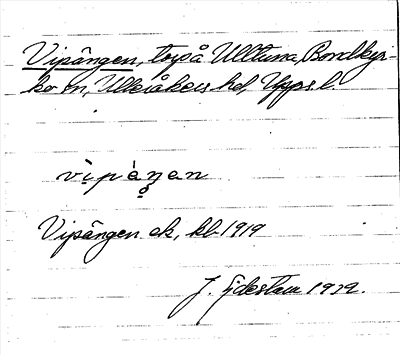 Vipängen, torp å Ulltuna, Bondkyr-
ko sn, Ulleråkers hd, Upps. l.
vìpä̀ŋən
Vipängen ek, kb. 1919
J. Sjdestam 1939.